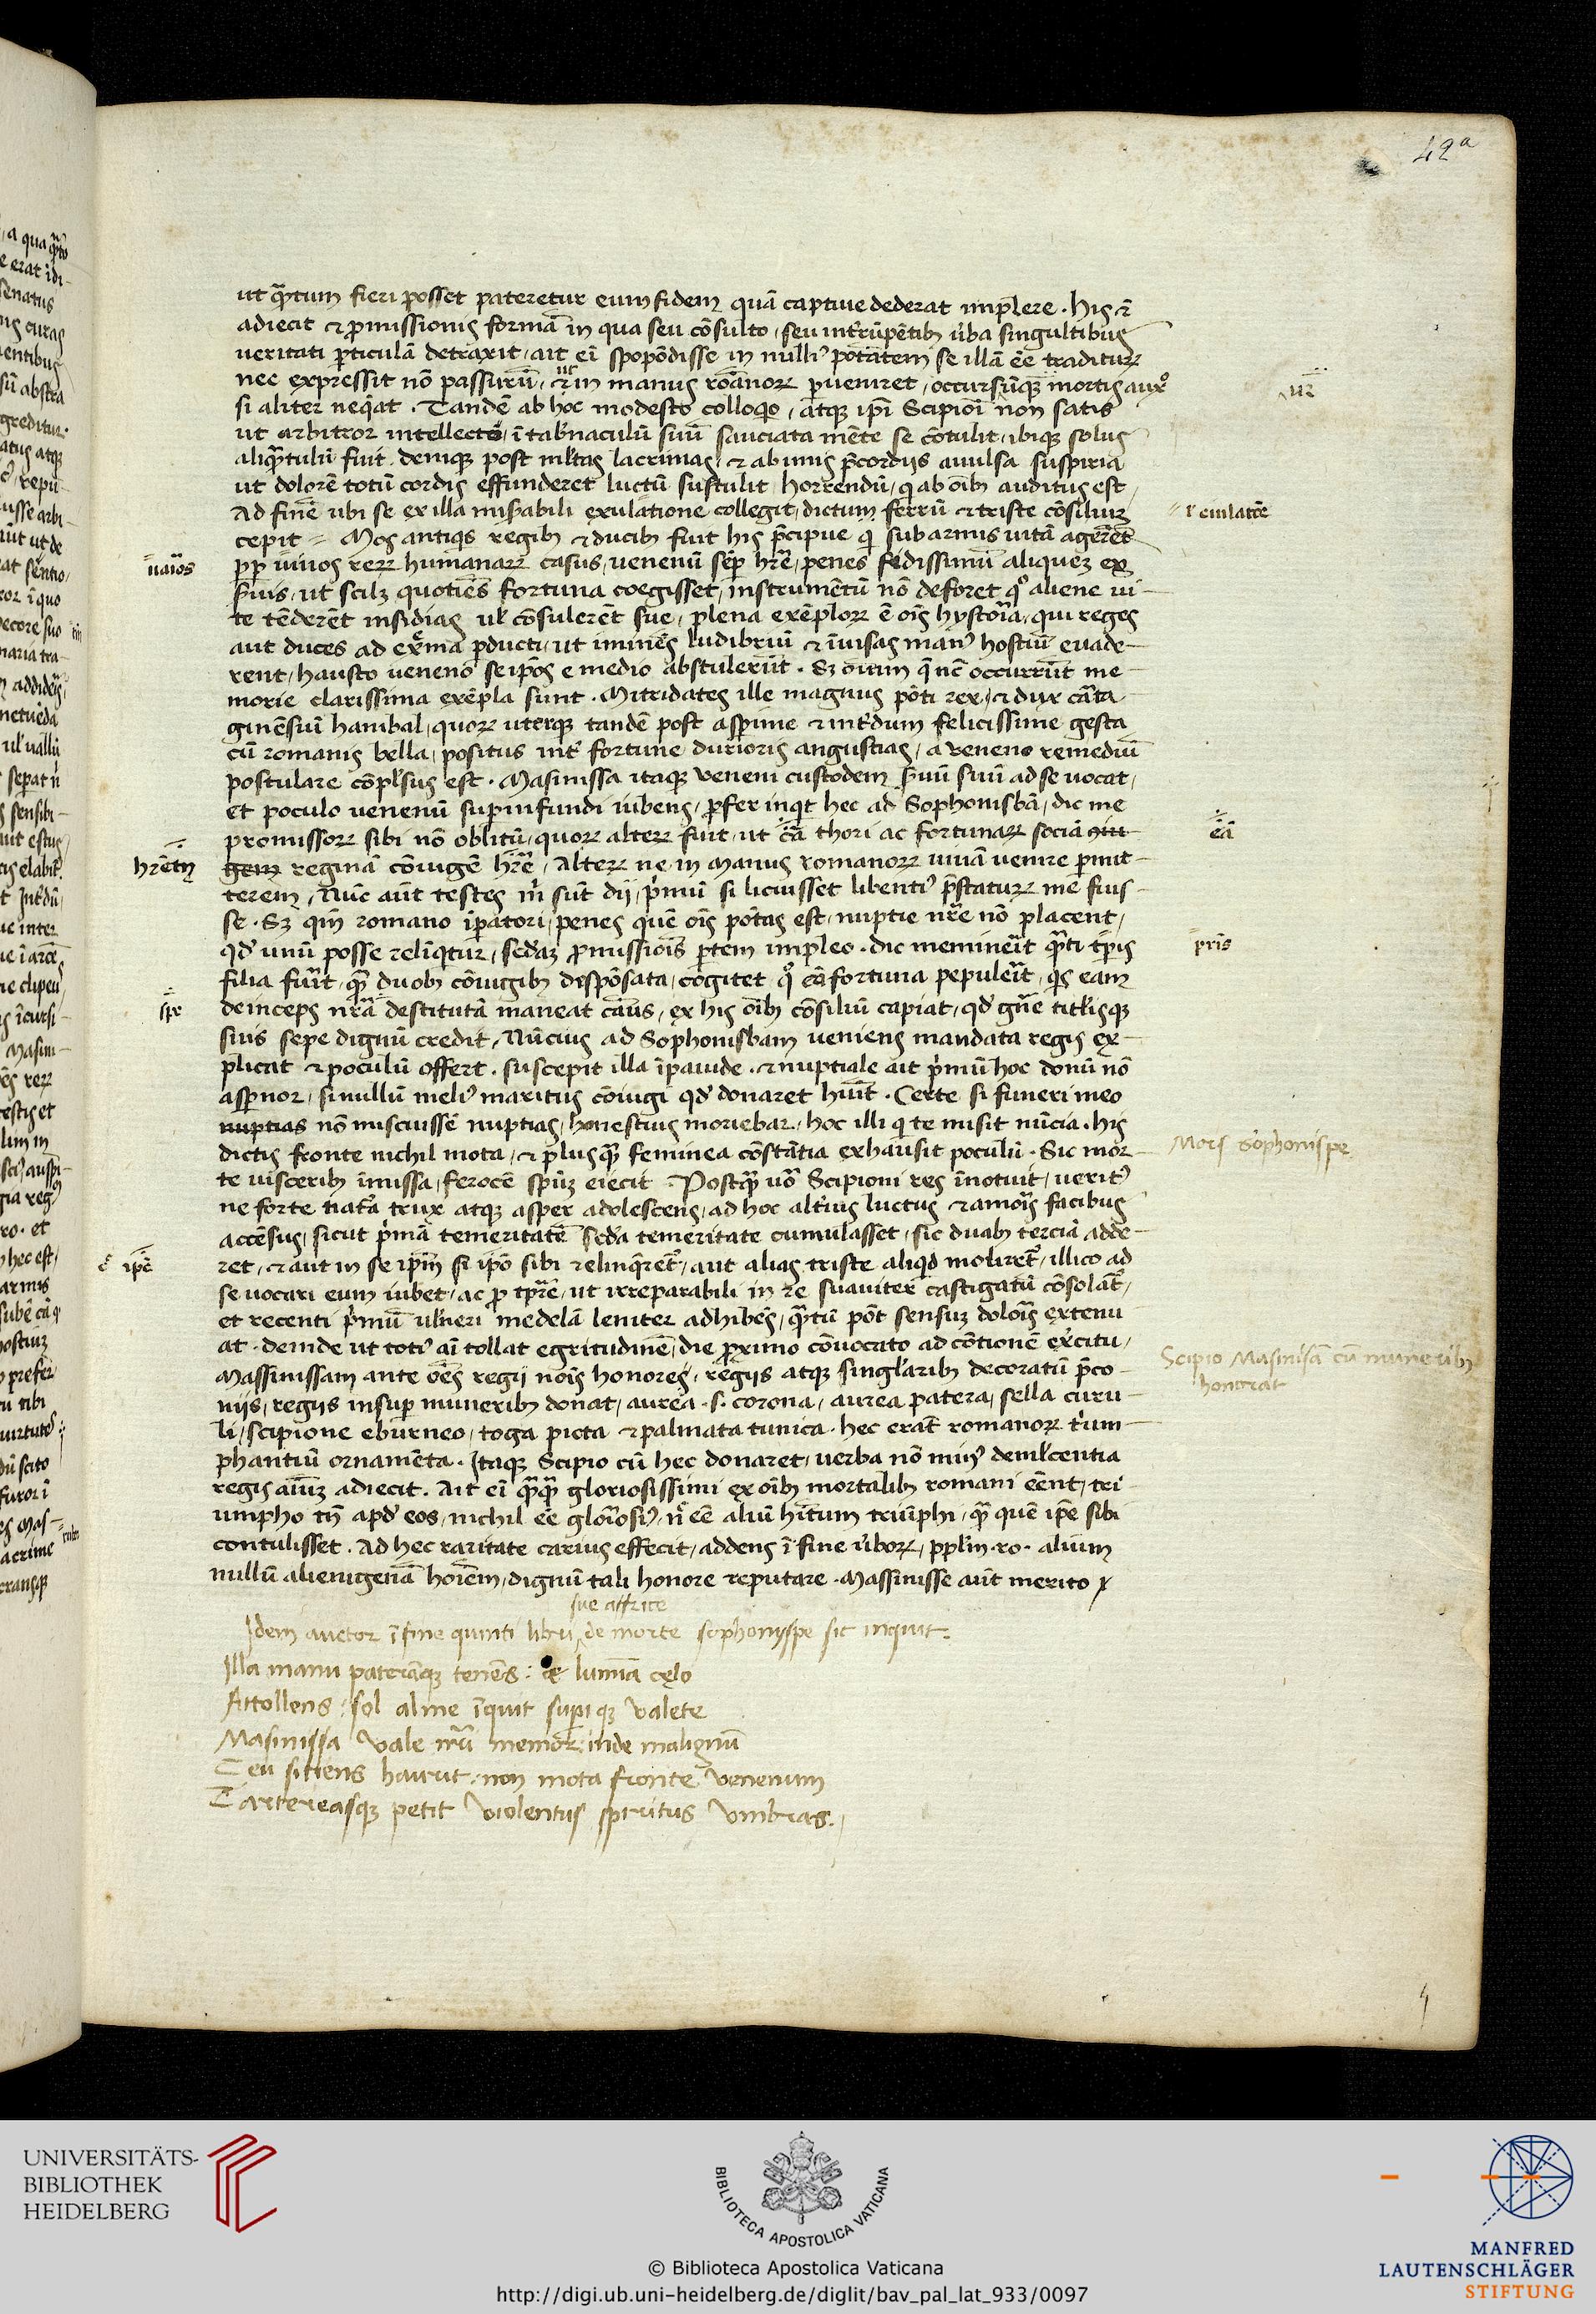 42a
ut qͣntum fieri posset pateretur eum fidem quā captiue dederat implere · his ⁊
adiecit ⁊ promissionis formā in qua seu cōsulto / seu int̄rūpētib; ũba singultibus
ueritati ꝑticulā detraxit / ait eī spopōdisse in nulliꝰ potātem se illā eē traditurꝝ
nec expressit nō passurū / in manus roānorꝝ ꝑueniret / occursūqꝫ mortis
ur̄
si aliter neqͥat · Tandē ab hoc modesto colloqͥo / atqꝫ ip̄i Scipioī non satis
ut arbitror intellecto / ī tab̄naculū suū sauciata mēte se cōtulit / ibiqꝫ solus
aliqͣntulū fuit · deniqꝫ post ml̄tas lacrimas / ⁊ ab imis p̄cordijs auulsa suspiria
ut dolorē totū cordis effunderet luctū sustulit / horrendū / qͥ ab oīb; auditus est /
Ad finē ubi se ex illa mis̄abili exulatione collegit / dictum ferrū ⁊ triste cōsiliuꝫ
l' eiulatōe
cepit = Mos antiqͥs regib; ⁊ ducib; fuit his p̄cipue qͥ sub armis uitā agerēt
uaīos
ꝓꝑ uiuos rerꝝ humanarꝝ casus / uenenū sēꝑ hr̄e / penes fidissimū aliquez ex
ẜuis / ut scilꝫ quotiēs fortuna coegisset / instrumētū nō deforet qͦ aliene ui-
te tēderēt insidias / ul̓ cōsulerēt sue / plena exēplorꝝ ē oīs hystoria / qui reges
aut duces ad ext̄ma ꝑducti / ut iminēs ludibriū ⁊ īuisas manꝰ hostiū euade-
rent / hausto ueneno seip̄os e medio abstulerūt · Sꝫ oīum qͥ nc̄ occurrūt me-
morie clarissima exēpla sunt · Mitridates ille magnus pōti rex / ⁊ dux cārta-
ginēsiū hanibal / quorꝝ uterqꝫ tandē post asꝑrime ⁊ int̄dum felicissime gesta
cū romanis bella / positus int̄ fortune durioris angustias / a ueneno remediū
postulare cōpl̓sus est · Masinissa itaqꝫ veneni custodem ẜuū suū ad se uocat /
et poculo uenenū suꝑinfundi iubens / ꝓfer inqͥt hec ad Sophonisbā / dic me
promissorꝝ sibi nō oblitū / quorꝝ alterꝝ fuit / ut cā thori ac fortunarꝝ sociā
eā
hr̄etꝫ
gem reginā cōiugē hr̄e / Alterꝝ ne in manus romanorꝝ uiuā uenire ꝑmit-
terem / Nūc aūt testes m̄ sūt dij / pͥmū si licuisset libentiꝰ p̄staturꝝ mē fuis-
se · Sꝫ qm̄ romano īꝑatori / penes quē oīs pōtas est / nuptie nr̄e nō placent /
qd̓ unū posse relīqͥtur / sed̄aꝫ ꝓmissiois ꝑtem impleo · dic meminerīt qͣnti tp̄is
pr̄is
filia fuīt / qͣ duob; cōiugib; despōsata / cogitet / qͦ eā fortuna pepulerīt / qͥs eam
spr
deinceps nr̄a destitutā maneat cāus / ex his oīb; cōsiliū capiat / qd̓ gn̄e titl̓isqꝫ
suis sepe dignū credit / Nūcius ad Sophonisbam ueniens mandata regis ex-
plicat ⁊ poculū offert · suscepit illa īpauide · ⁊ nuptiale ait pͥmū hoc donū nō
asꝑnor / si nullū meliꝰ maritus cōiugi qd̓ donaret hūit · Certe si funeri meo
nuptias nō miscuissē nuptias / honestius moriebar / hoc illi qͥ te misit nūcia · his
dictis fronte nichil mota / ⁊ plusqͣ feminea cōstātia exhausit poculū · Sic mor-
Mors Sophonispe
te uiscerib; īmissa / ferocē spūꝫ eiecit · Postqͣ uō Scipioni res īnotuit / ueritꝰ
ne forte nat̄a trux atqꝫ asper adolescens / ad hoc alt̄ius luctus ⁊ amoris facibus
accēsus / sicut pͥmā temeritatē sed̄a temeritate cumulasset / sic duab; terciā adde-
ip̄ē
ret / ⁊ aut in se ip̄m si ip̄o sibi relinqͥret / aut alias triste aliqd̓ moliret / illico ad
se uocari eum iubet / ac ꝓ tp̄re / ut irreparabili in re suauiter castigatū cōsolat̄ /
et recenti pͥmū uln̄eri medelā leniter adhibēs / qͣntū pōt sensuꝫ doloris extenu
at · deinde ut totiꝰ aī tollat egritudinē / die ꝓximo cōuocato ad cōtionē ex̄citu /
Scipio Masinisā cū munerib;
honorat
Massinissam ante oēs regij nōis honores / regijs atqꝫ singl̓arib; decoratū p̄co-
nijs / regijs insuꝑ munerib; donat / aurea · s · corona / aurea patera / sella curu-
li / scipione eburneo / toga picta ⁊ palmata tunica · hec erāt romanorꝝ trium-
phantiū ornamēta · Itaqꝫ Scipio cū hec donaret / uerba nō minꝰ deml̓centia
regis aīuꝫ adiecit · Ait eī qͣqͣ gloriosissimi ex oīb; mortalib; romani eēnt / tri-
umpho tn̄ apd̓ eos / nichil eē gloriosiꝰ / nͨ eē aliū hītum triūphi / qͣ quē ip̄e sibi
contulisset · Ad hec raritate carius effecit / addens ī fine ũborꝝ / ppl̓m · ro · aliūm
nullū alienigenā hoīem / dignū tali honore reputare · Massinisse aūt merito
sue affrice
Idem auctor ī fine quinti libri de morte sophonyspe sic inquit:
Illa manu paterāqꝫ tenēs: & lumīa cęlo
Attollens: sol alme īquit suꝑiqꝫ valete
Masinissa vale nr̄i memor: inde malignū
Ceu sitiens haurit: non mota fronte venenum
Tartereasqꝫ petit violentus spiritus vmbras.
UNIVERSITÄTS-
BIBLIOTHEK
HEIDELBERG
BIBLIOTECA APOSTOLICA VATICANA
MANFRED
LAUTENSCHLÄGER
STIFTUNG
© Biblioteca Apostolica Vaticana
http://digi.ub.uni-heidelberg.de/diglit/bav_pal_lat_933/0097